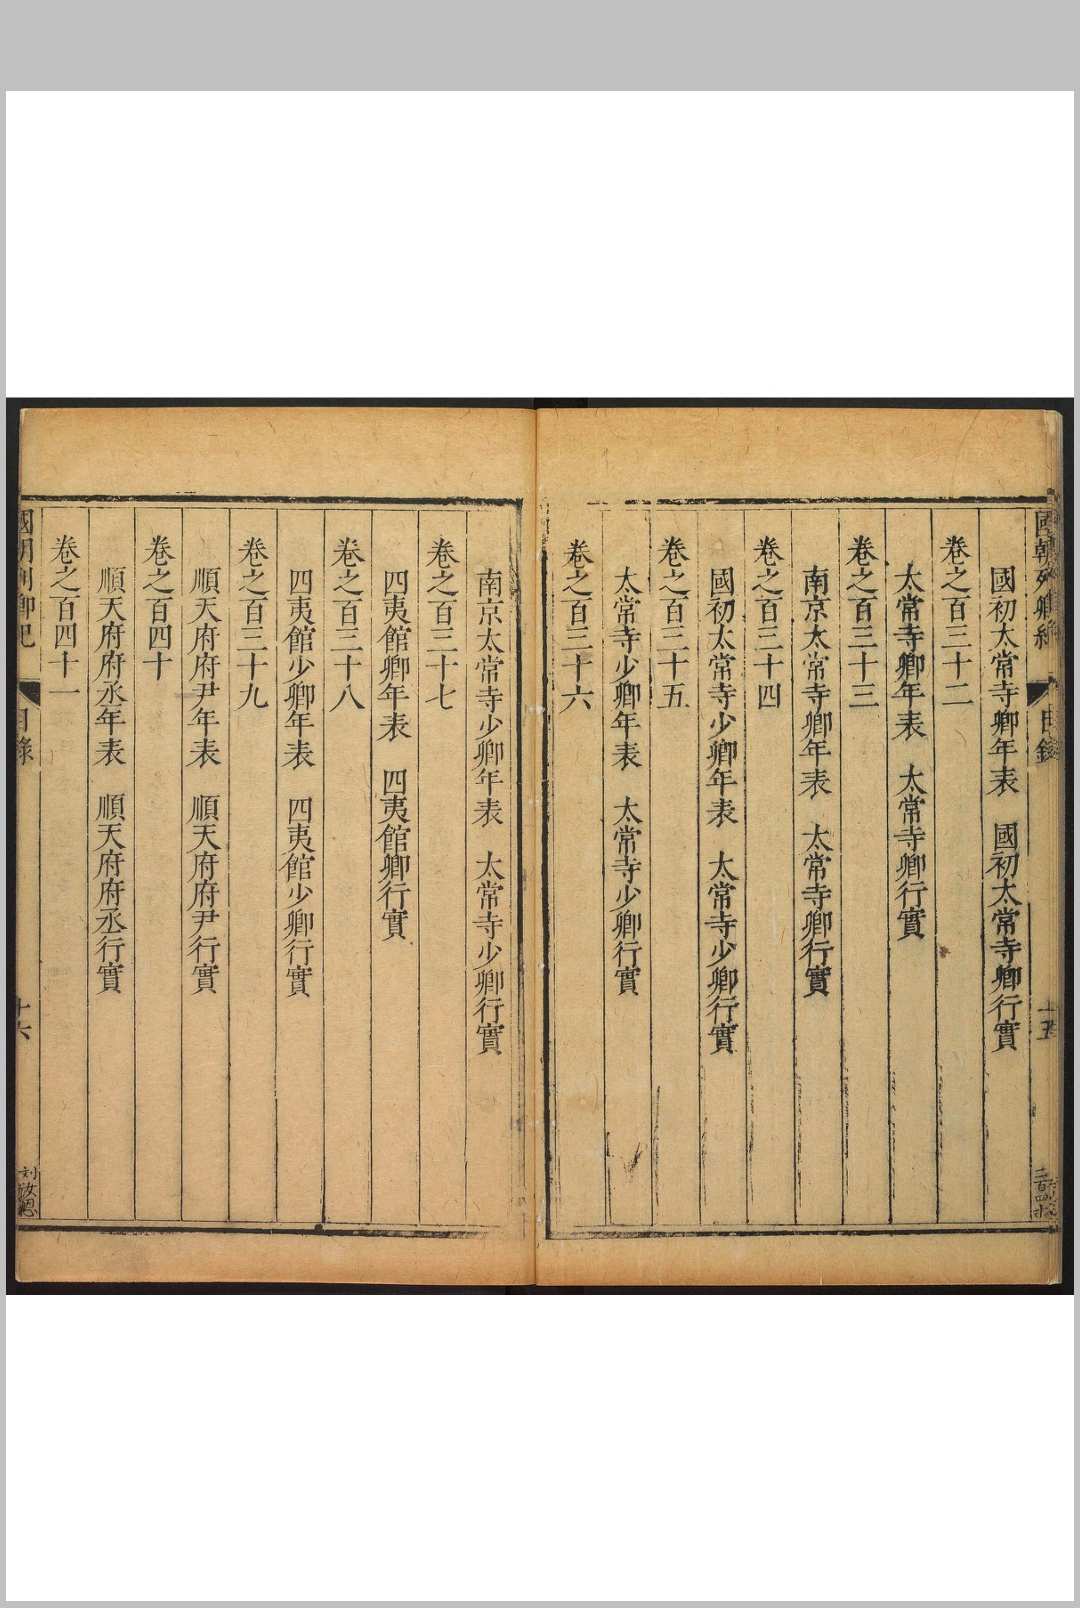 國朝列卿紀
目錄
十五
國初太常寺卿年表　國初太常寺卿行實
卷之百三十二
太常寺卿年表　太常寺卿行實
卷之百三十三
南京太常寺卿年表　太常寺卿行實
卷之百三十四
國初太常寺少卿年表　太常寺少卿行實
卷之百三十五
太常寺少卿年表　太常寺少卿行實
卷之百三十六
南京太常寺少卿年表　太常寺少卿行實
卷之百三十七
四夷館卿年表　四夷館卿行實
卷之百三十八
四夷館少卿年表　四夷館少卿行實
卷之百三十九
順天府府尹年表　順天府府尹行實
卷之百四十
順天府府丞年表　順天府府丞行實
卷之百四十一
國朝列卿紀
目錄
十六